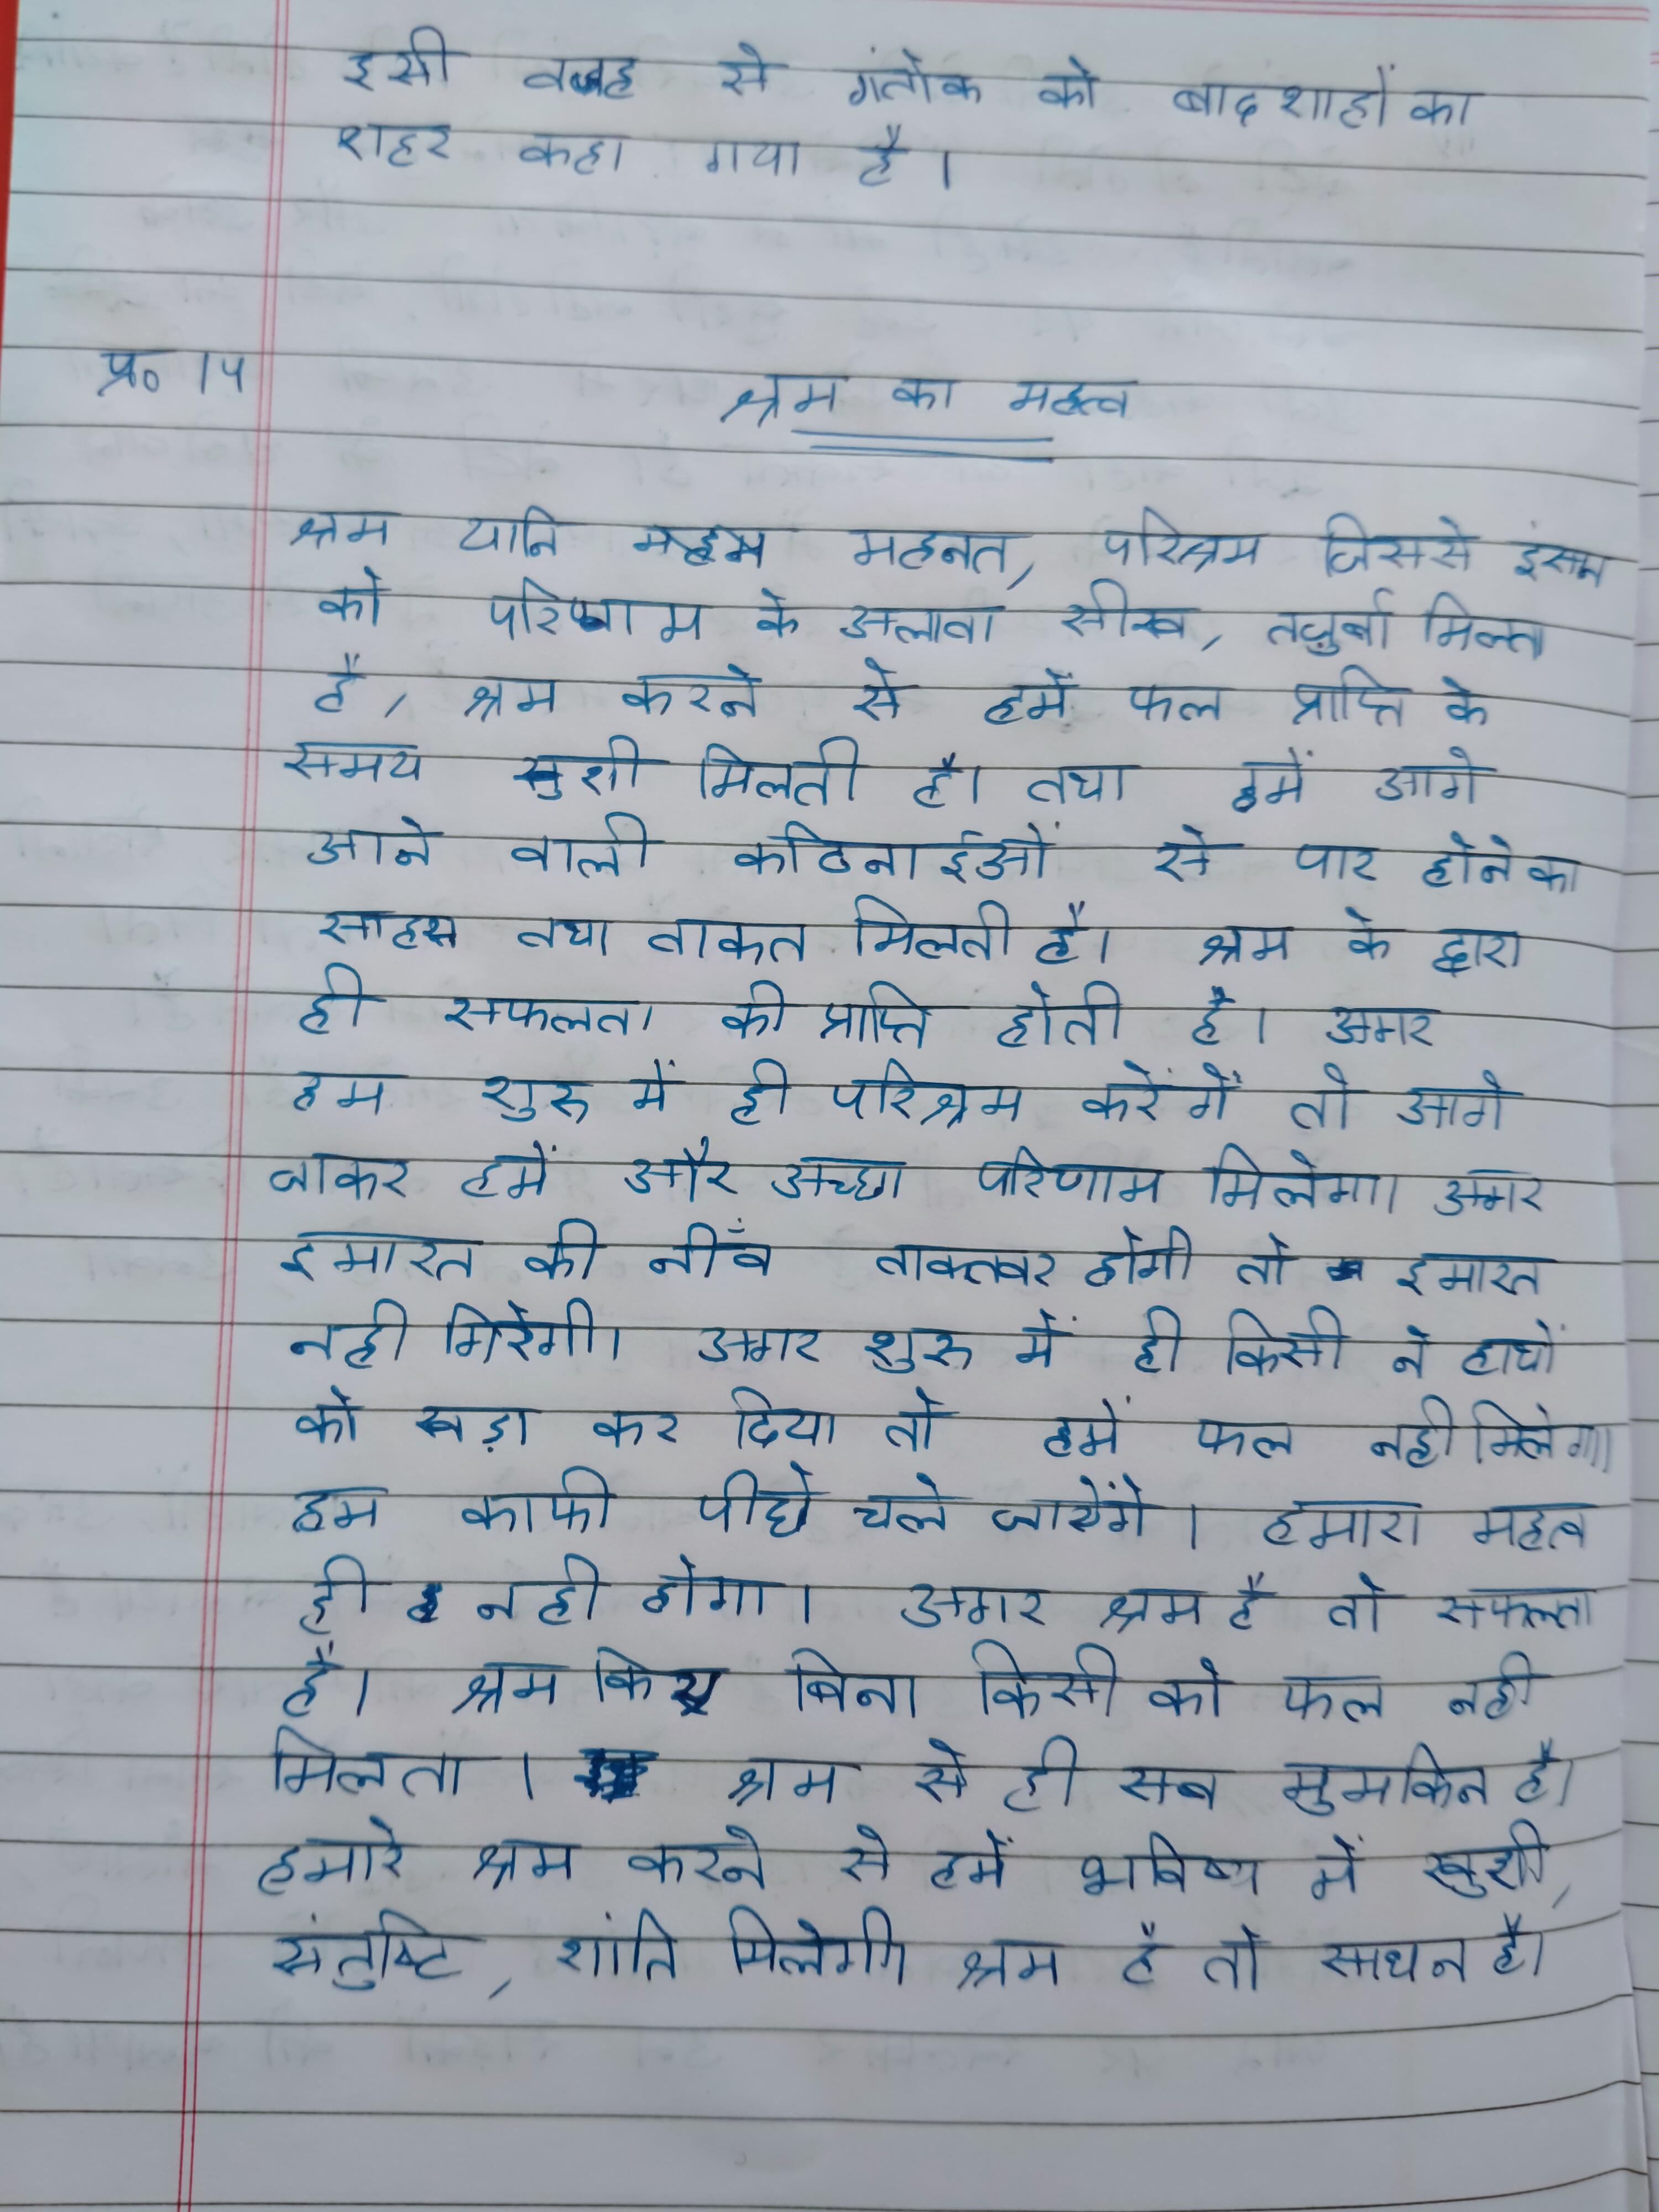 इसी वजह से गंतोक को बादशाहों का
शहर कहा गया है।
प्र० 14
श्रम का महत्व
श्रम यानि महनत, परिश्रम जिससे इंसान
को परिणाम के अलावा सीख, तजुर्बा मिलता
है, श्रम करने से हमें फल प्राप्ति के
समय खुशी मिलती है। तथा हमें आगे
आने वाली कठिनाईओं से पार होने का
साहस तथा ताकत मिलती है। श्रम के द्वारा
ही सफलता की प्राप्ति होती है। अगर
हम शुरु में ही परिश्रम करेंगें तो आगे
जाकर हमें और अच्छा परिणाम मिलेगा। अगर
इमारत की नीँव ताकतवर होगी तो इमारत
नही गिरेगी। अगर शुरु में ही किसी ने हाथों
को खड़ा कर दिया तो हमें फल नही मिलेगा।
हम काफी पीछे चले जायेंगे। हमारा महत्व
ही नही होगा। अगर श्रम है तो सफलता
है। श्रम किये बिना किसी को फल नही
मिलता। श्रम से ही सब मुमकिन है।
हमारे श्रम करने से हमें भविष्य में खुशी,
संतुष्टि, शांति मिलेगी। श्रम है तो साधन है।